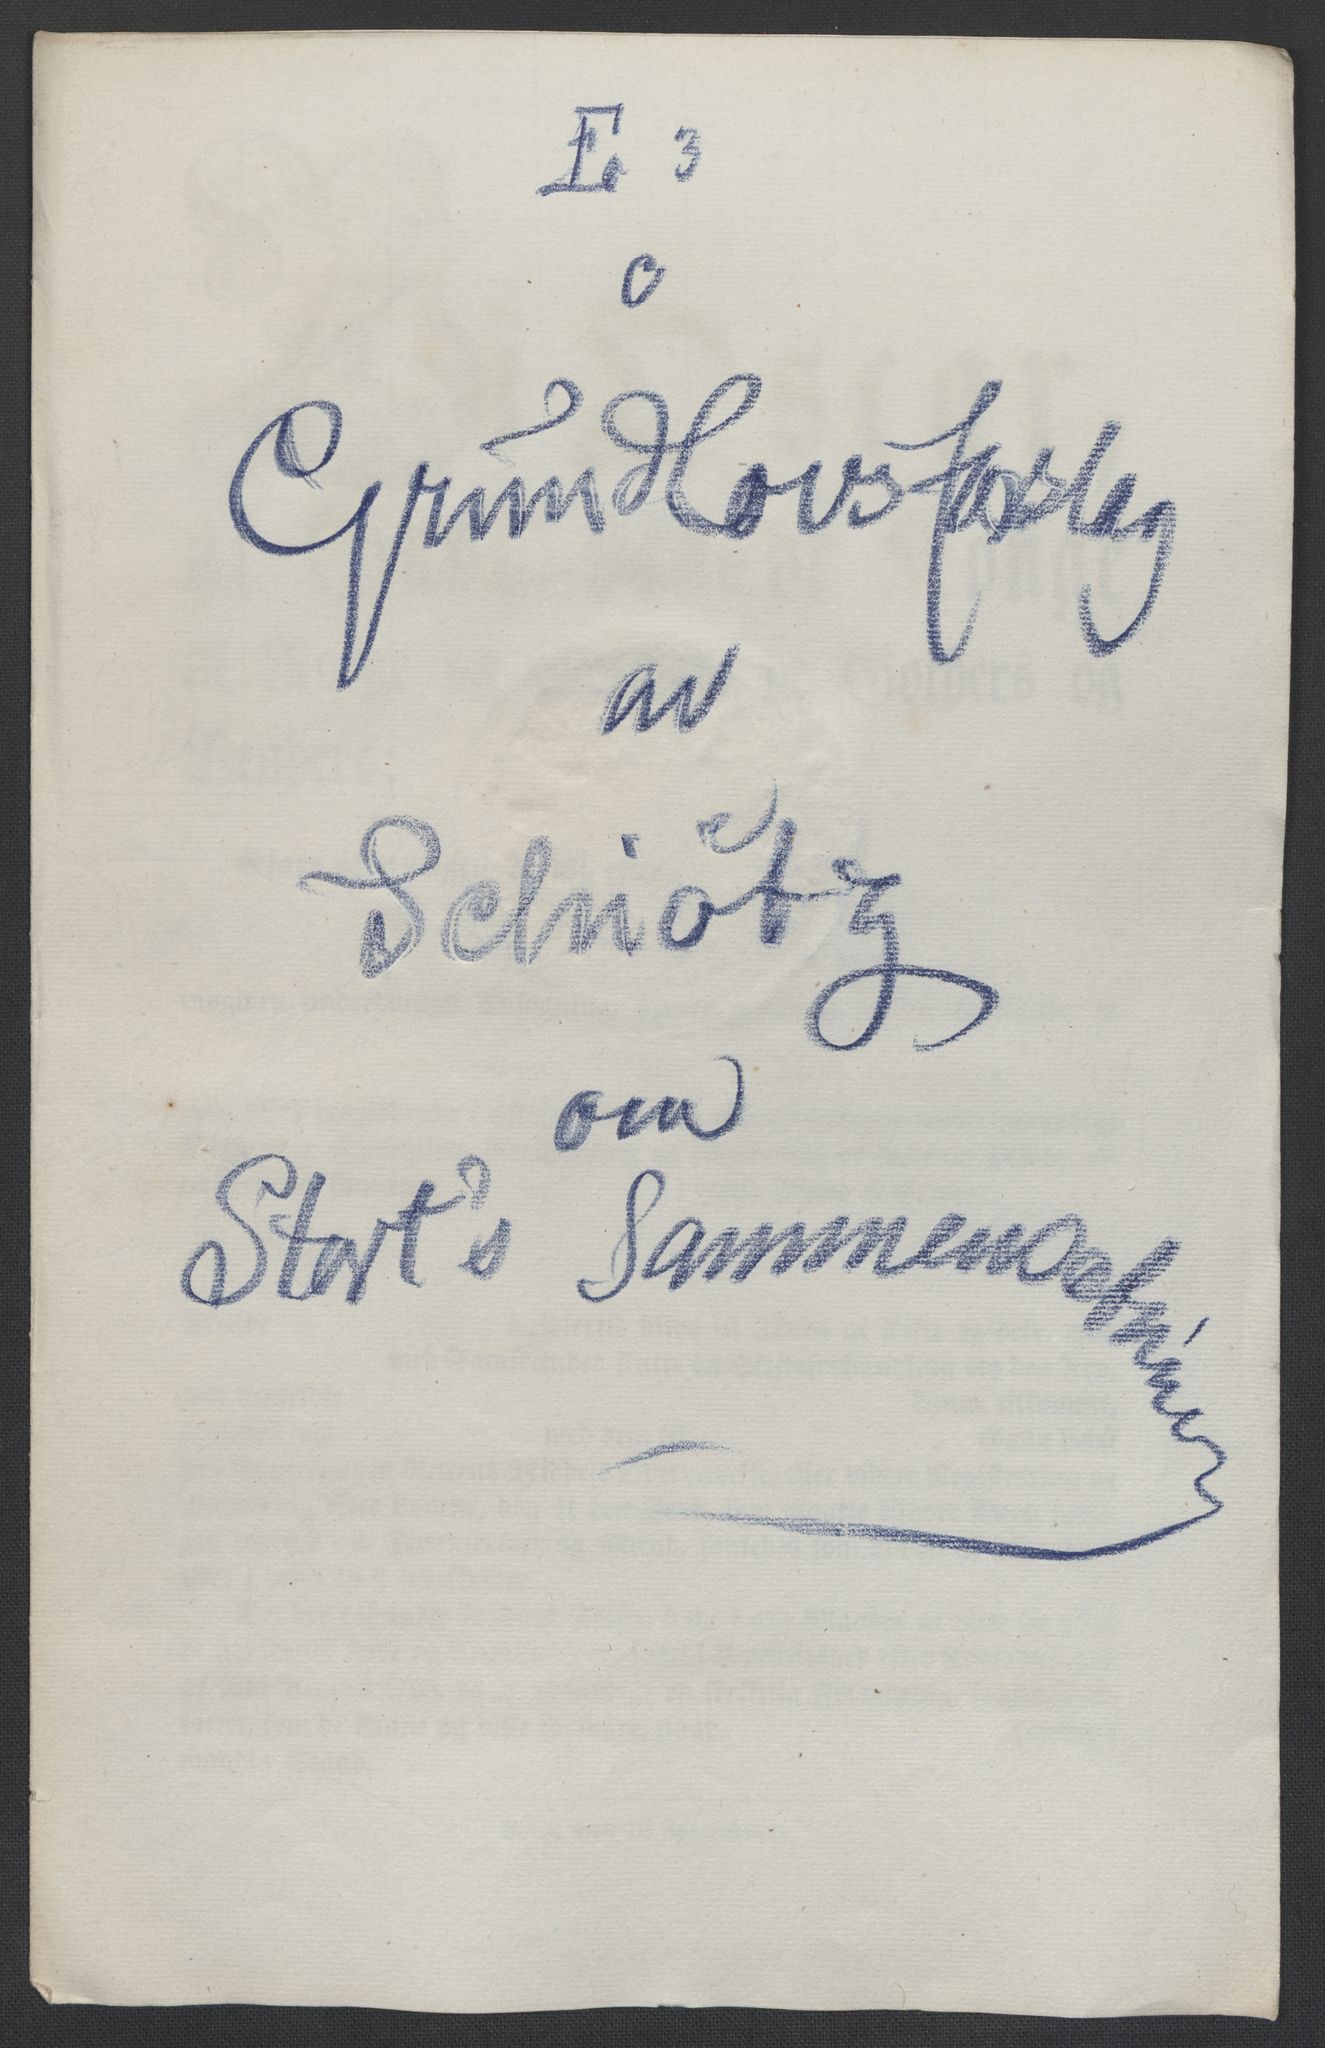 E 3
o
Grundlovsforslag
av
Schiøtz
om
Stort's Sammensetning